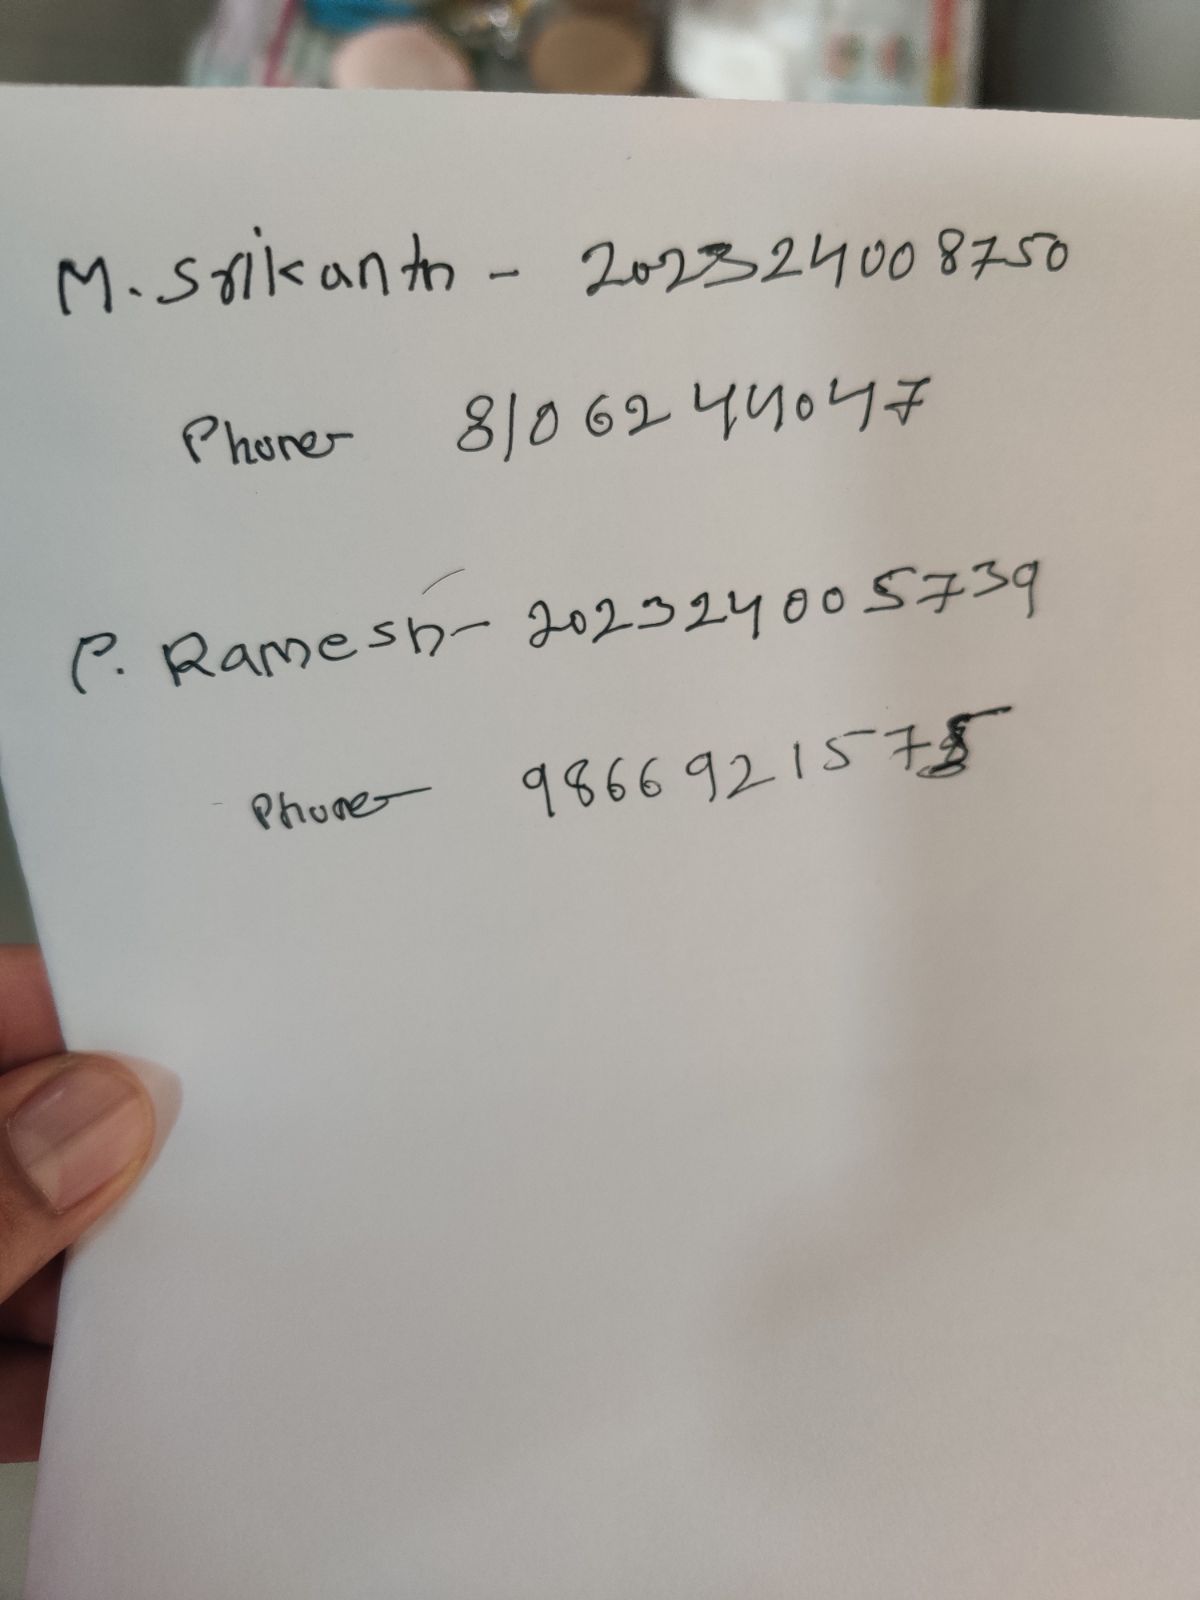 M. Srikanth - 202324008750
Phone- 8106244047
P. Ramesh - 202324005739
Phone- 9866921575